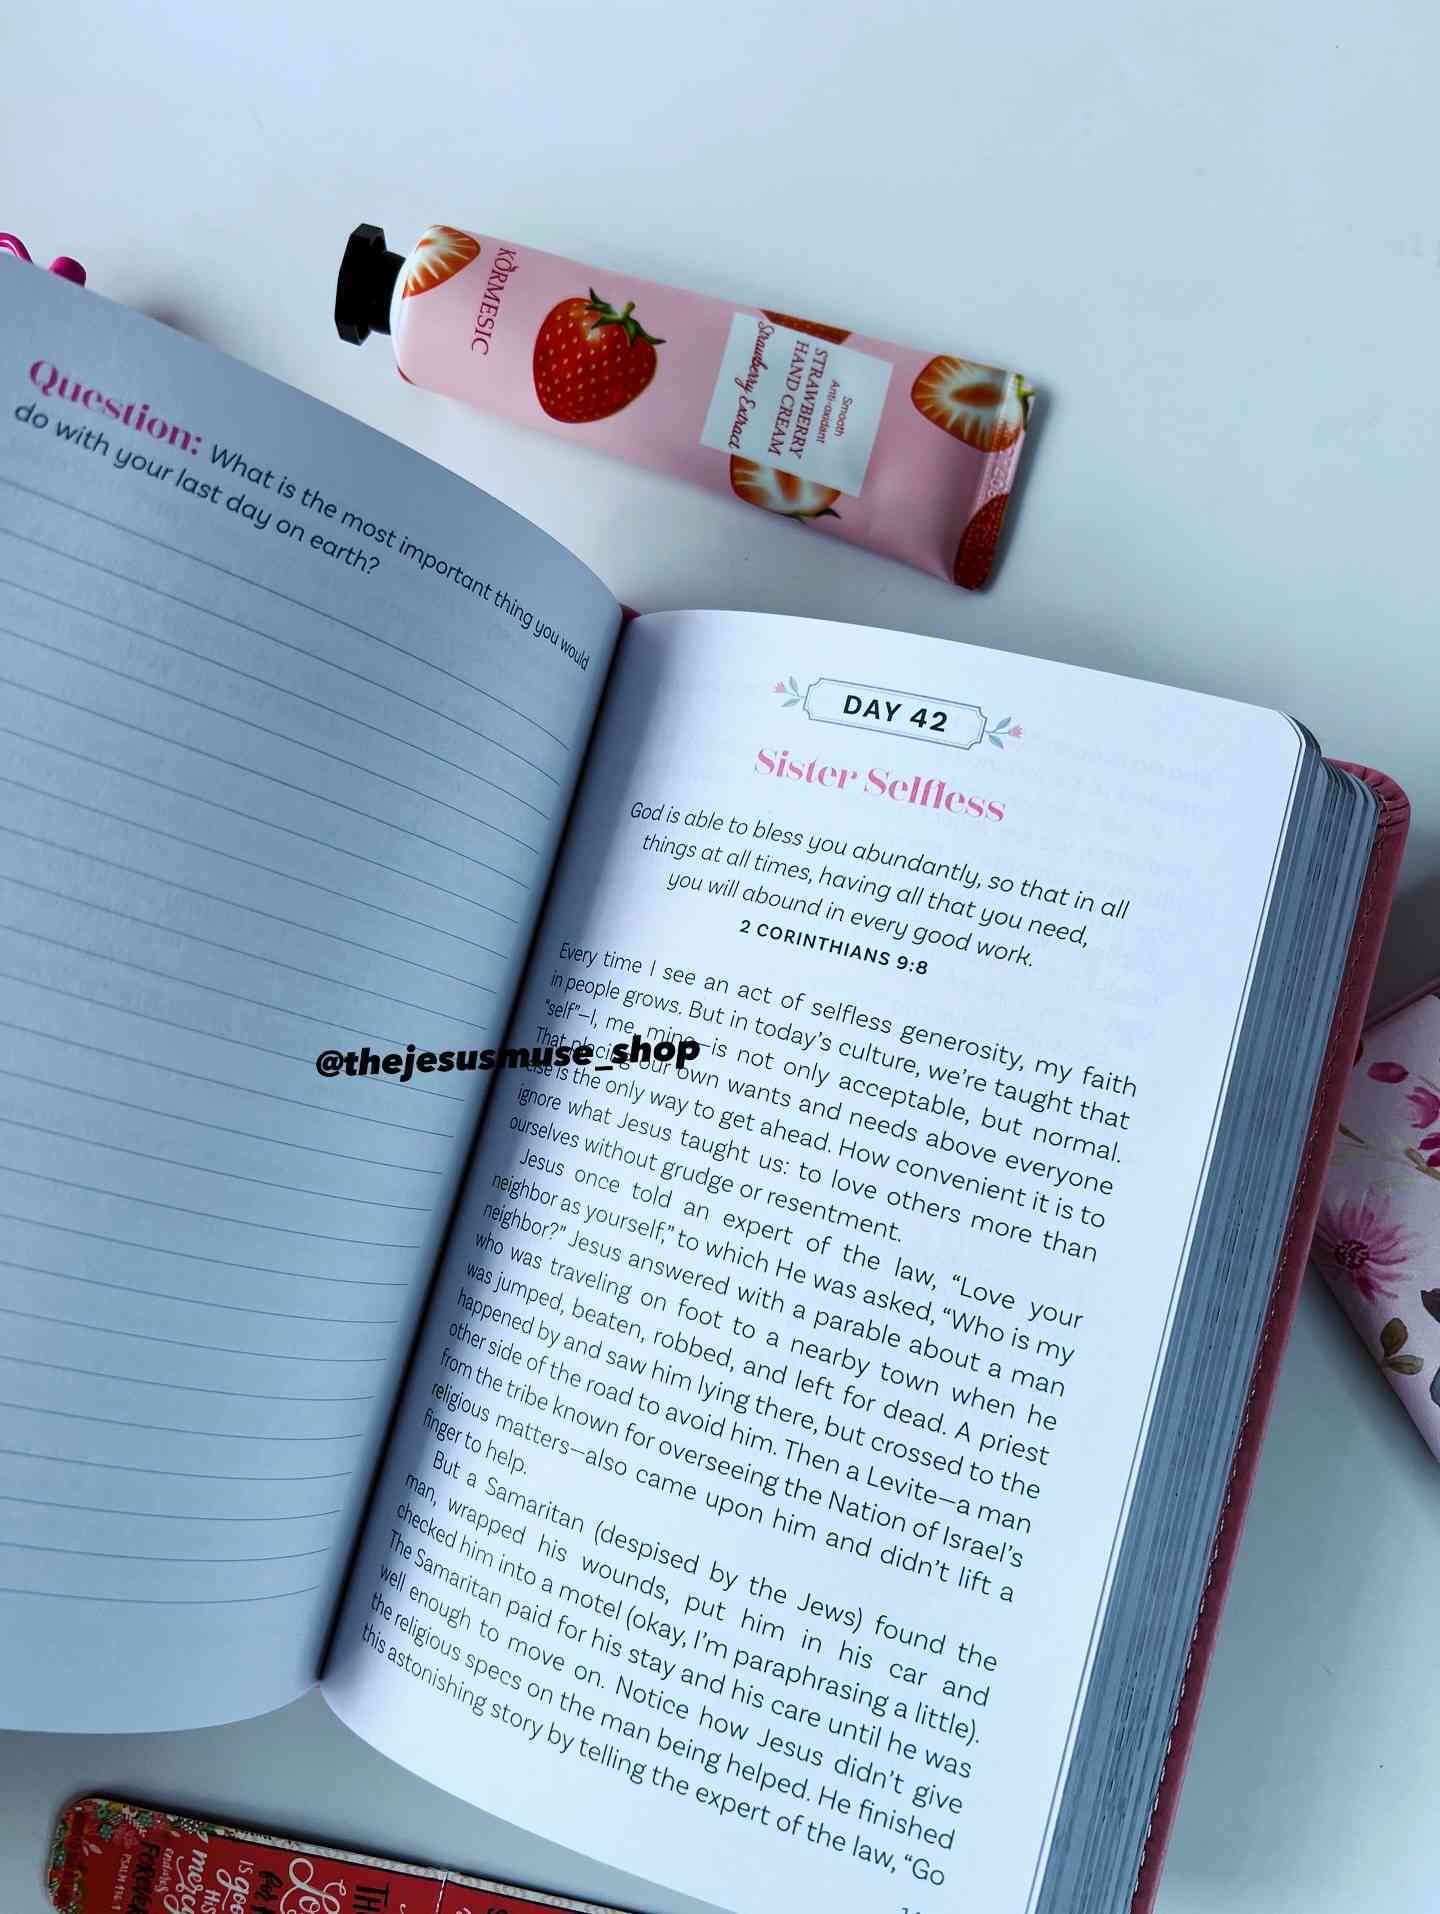 KORMESIC
Smooth
Anti-oxidant
STRAWBERRY
HAND CREAM
Strawberry Extract
Question: What is the most important thing you would
do with your last day on earth?
DAY 42
Sister Selfless
God is able to bless you abundantly, so that in all
things at all times, having all that you need,
you will abound in every good work.
2 CORINTHIANS 9:8
Every time I see an act of selfless generosity, my faith
in people grows. But in today's culture, we're taught that
"self"—I, me, mine—is not only acceptable, but normal.
That placing our own wants and needs above everyone
else is the only way to get ahead. How convenient it is to
ignore what Jesus taught us: to love others more than
ourselves without grudge or resentment.
Jesus once told an expert of the law, "Love your
neighbor as yourself," to which He was asked, "Who is my
neighbor?" Jesus answered with a parable about a man
who was traveling on foot to a nearby town when he
was jumped, beaten, robbed, and left for dead. A priest
happened by and saw him lying there, but crossed to the
other side of the road to avoid him. Then a Levite—a man
from the tribe known for overseeing the Nation of Israel's
religious matters—also came upon him and didn't lift a
finger to help.
But a Samaritan (despised by the Jews) found the
man, wrapped his wounds, put him in his car and
checked him into a motel (okay, I'm paraphrasing a little).
The Samaritan paid for his stay and his care until he was
well enough to move on. Notice how Jesus didn't give
the religious specs on the man being helped. He finished
this astonishing story by telling the expert of the law, "Go
@thejesusmuse_shop
IS good
HIS
mercy
endures
FOREVER
PSALM 116:1